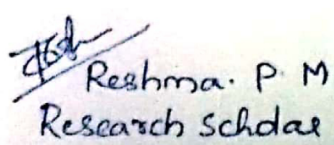 Reshma. P. M
Research Scholar